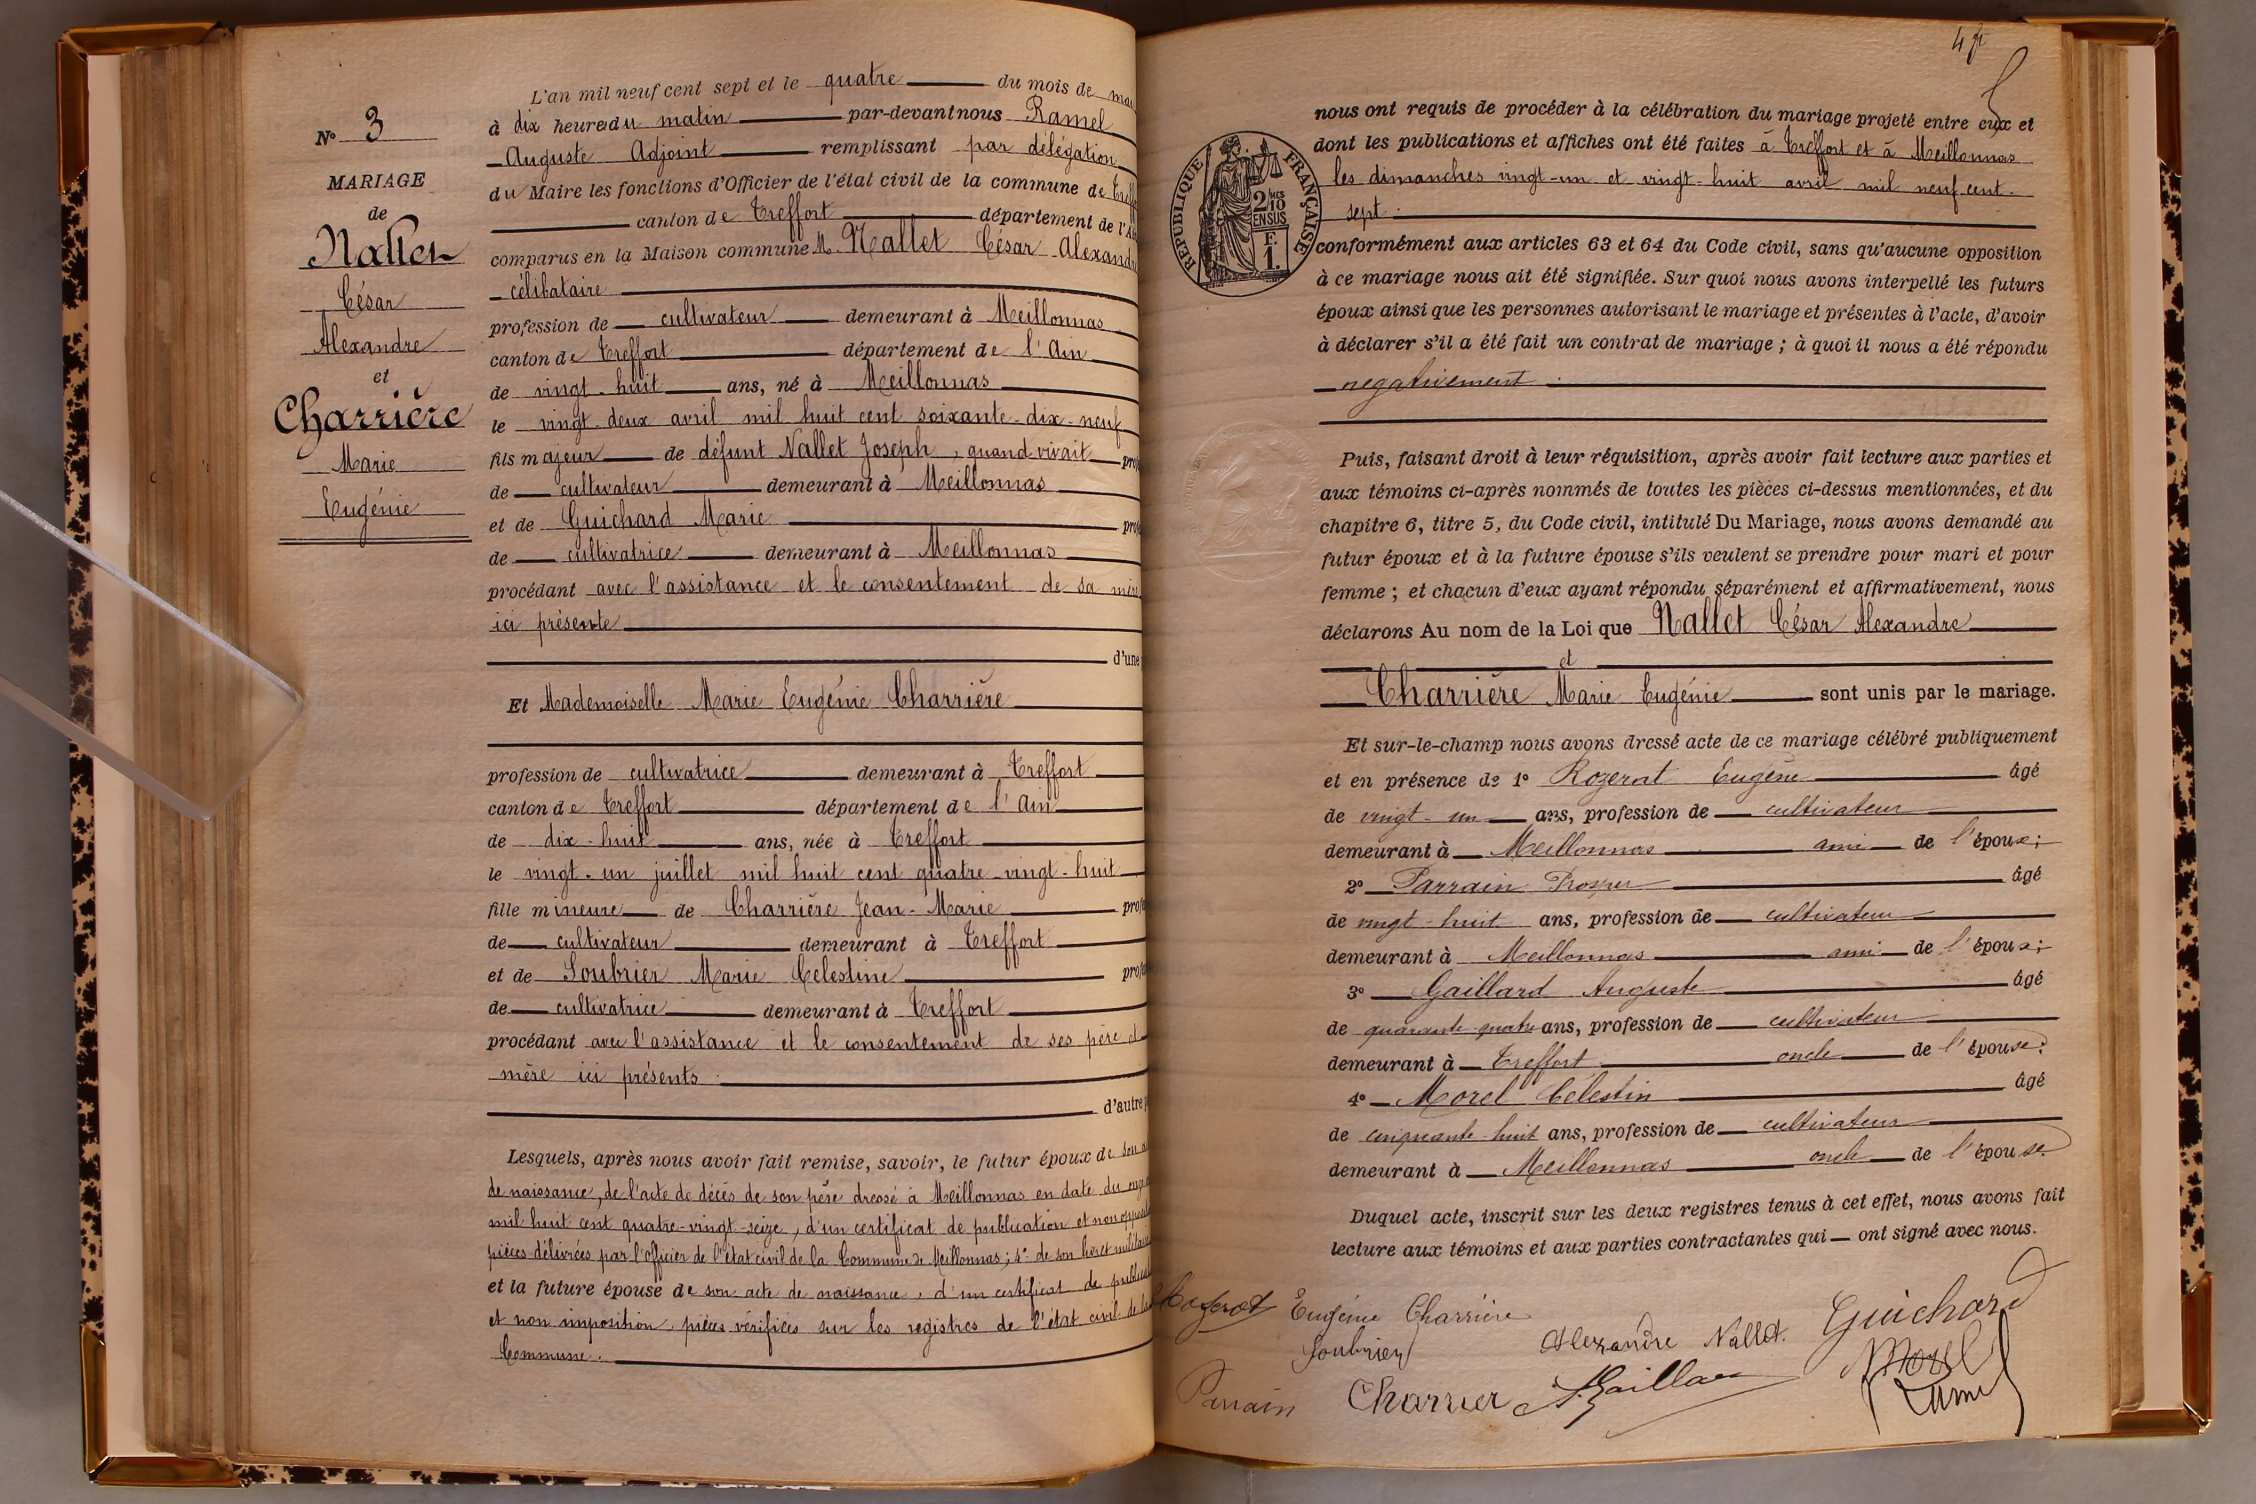 N° 3
MARIAGE
de
Nallet
César
Alexandre
et
Charrière
Marie
Eugénie
L'an mil neuf cent sept et le quatre du mois de
à dix heures du matin par-devant nous Ramel
Auguste Adjoint remplissant par délégation
du Maire les fonctions d'Officier de l'état civil de la commune de
canton de Treffort département de
comparus en la Maison commune M. Nallet César Alexandre
célibataire
profession de cultivateur demeurant à Meillonnas
canton de Treffort département de l'Ain
de vingt-huit ans, né à Meillonnas
le vingt-deux avril mil huit cent soixante-dix-neuf
fils majeur de défunt Nallet Joseph, quand vivait
de cultivateur demeurant à Meillonnas
et de Guichard Marie
de cultivatrice demeurant à Meillonnas
procédant avec l'assistance et le consentement de sa mère
ici présente
d'une
Et Mademoiselle Marie Eugénie Charrière
profession de cultivatrice demeurant à Treffort
canton de Treffort département de l'Ain
de dix-huit ans, née à Treffort
le vingt-un juillet mil huit cent quatre-vingt-huit
fille mineure de Charrière Jean-Marie
de cultivateur demeurant à Treffort
et de Soubrier Marie Celestine
de cultivatrice demeurant à Treffort
procédant avec l'assistance et le consentement de ses père et
mère ici présents.
d'autre
Lesquels, après nous avoir fait remise, savoir, le futur époux de son
de naissance, de l'acte de décès de son père dressé à Meillonnas en date du
mil huit cent quatre-vingt-seize, d'un certificat de publication et non
pièces délivrées par l'officier de l'état civil de la Commune de Meillonnas; 4° de son livret militaire
et la future épouse de son acte de naissance, d'un certificat de
et non opposition, pièces vérifiées sur les registres de l'état civil de
Commune.
nous ont requis de procéder à la célébration du mariage projeté entre eux et
dont les publications et affiches ont été faites à Treffort et à Meillonnas
les dimanches vingt-un et vingt-huit avril mil neuf cent
sept.
RÉPUBLIQUE FRANÇAISE
2/10
EN SUS
F.
1.
conformément aux articles 63 et 64 du Code civil, sans qu'aucune opposition
à ce mariage nous ait été signifiée. Sur quoi nous avons interpellé les futurs
époux ainsi que les personnes autorisant le mariage et présentes à l'acte, d'avoir
à déclarer s'il a été fait un contrat de mariage ; à quoi il nous a été répondu
negativement.
Puis, faisant droit à leur réquisition, après avoir fait lecture aux parties et
aux témoins ci-après nommés de toutes les pièces ci-dessus mentionnées, et du
chapitre 6, titre 5, du Code civil, intitulé Du Mariage, nous avons demandé au
futur époux et à la future épouse s'ils veulent se prendre pour mari et pour
femme ; et chacun d'eux ayant répondu séparément et affirmativement, nous
déclarons Au nom de la Loi que Nallet César Alexandre
et
Charrière Marie Eugénie sont unis par le mariage.
Et sur-le-champ nous avons dressé acte de ce mariage célébré publiquement
et en présence de 1° Rozerat Eugène âgé
de vingt-un ans, profession de cultivateur
demeurant à Meillonnas ami de l'époux;
2° Parrain Prosper âgé
de vingt-huit ans, profession de cultivateur
demeurant à Meillonnas ami de l'époux;
3° Gaillard Auguste âgé
de quarante-quatre ans, profession de cultivateur
demeurant à Treffort oncle de l'épouse;
4° Morel Célestin âgé
de cinquante-huit ans, profession de cultivateur
demeurant à Meillonnas oncle de l'épouse
Duquel acte, inscrit sur les deux registres tenus à cet effet, nous avons fait
lecture aux témoins et aux parties contractantes qui ont signé avec nous.
Eugénie Charrière
Guichard
Soubrier
Alexandre Nallet.
Morel
Parrain
Charrier
Ramel